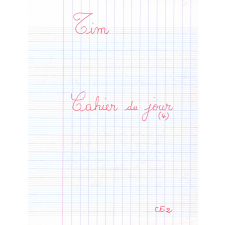 Tim
Cahier du jour
(4)
CE2